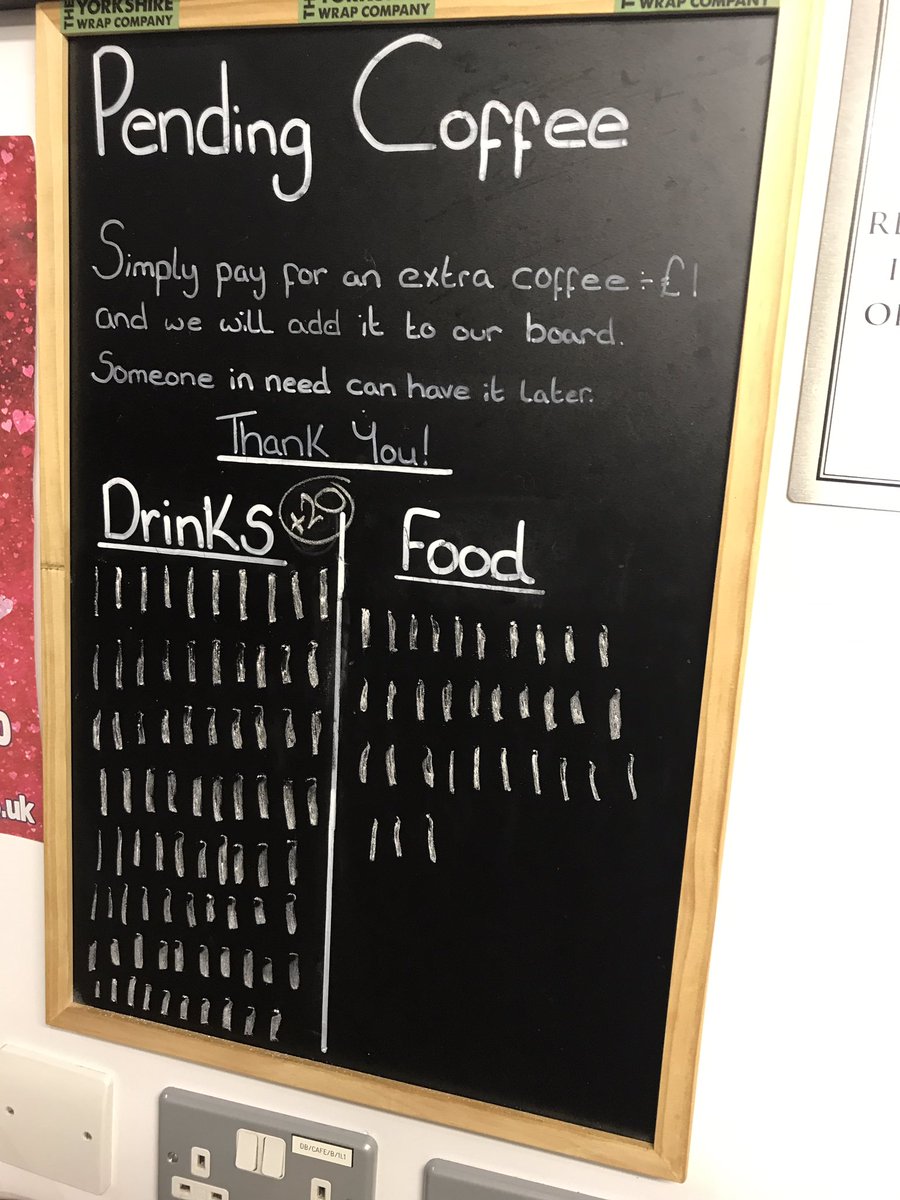 THE YORKSHIRE
WRAP COMPANY
WRAP COMPANY
WRAP COMPANY
Pending Coffee
Simply pay for an extra coffee :- £1
and we will add it to our board.
Someone in need can have it later.
Thank You!
Drinks x20
Food
.uk
DB/CAFE/B/1L1